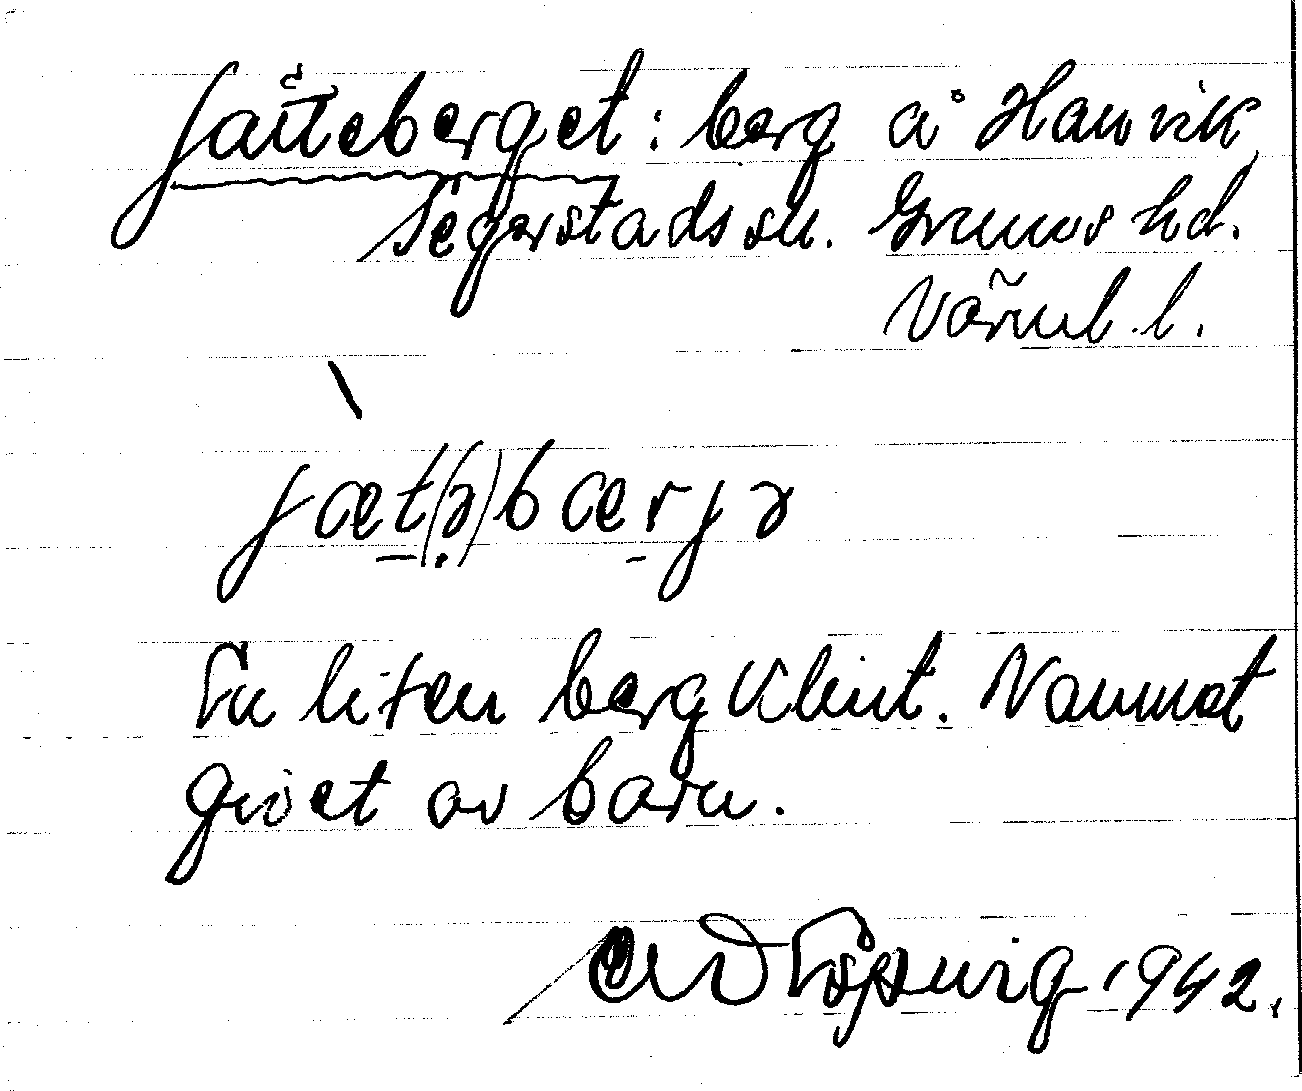 Jätteberget: berg å Hanvik,
Segerstads sn. Grums hd.
Värml. l.
jæt(ə)bærjə
En liten bergklint. Namnet
givet av barn.
1942.